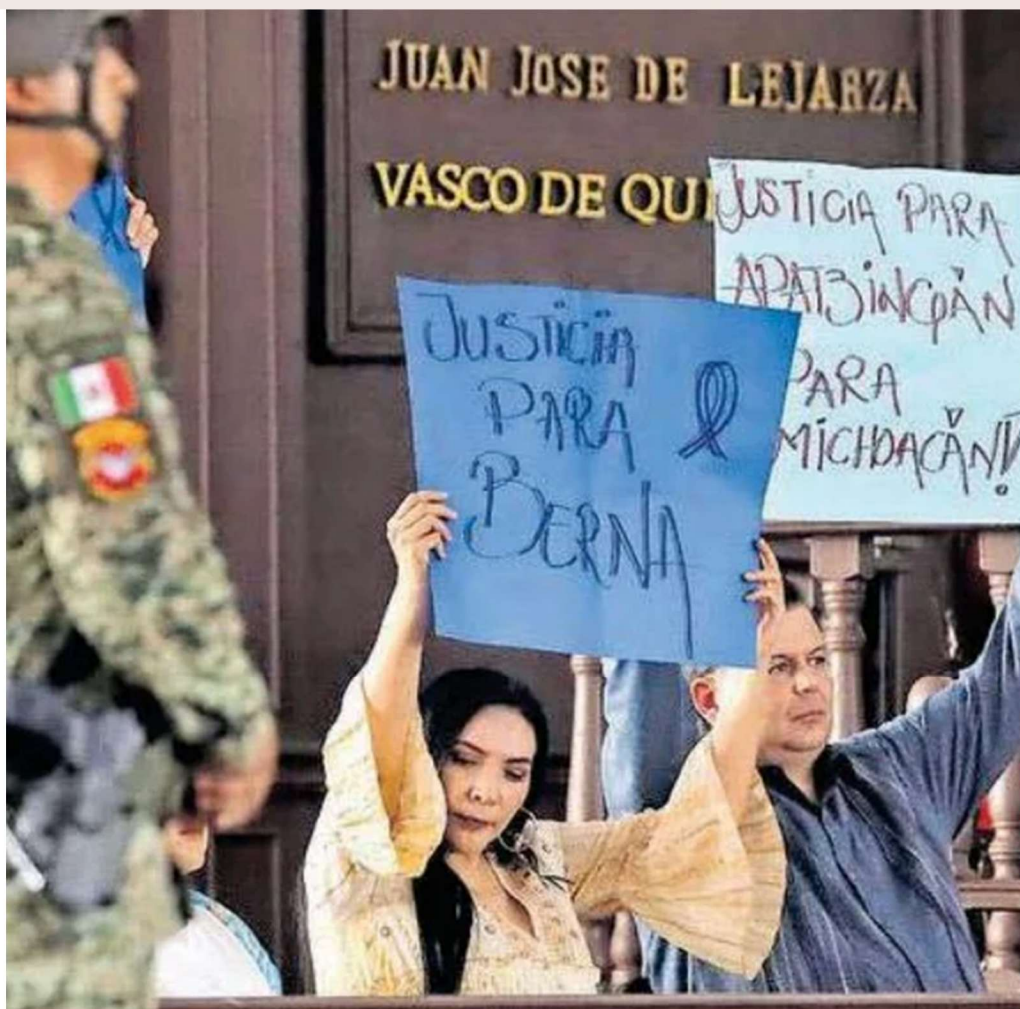 JUAN JOSE DE LEJARZA
VASCO DE QUI
JUSTICIA PARA
APATZINGÁN
PARA
MICHOACÁN!
JUSTICIA
PARA
BERNA